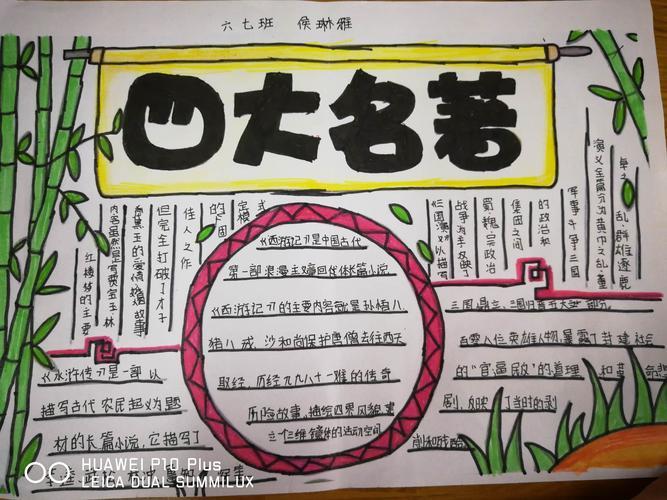 六七班 侯琳雅
四大名著
红楼梦的主要
内容虽然是写贾宝玉林
但完全打破了才子
佳人之作
《三国演义》以描写
战争为主反映了
蜀魏
集团之间
的政治和
军事斗争三国
演义全篇分为黄巾之乱董
乱群雄逐鹿
三国鼎立、三国归晋五大
百零人位英雄人物暴露了封建社会
的“官逼民反”的道理
剧，反映了当时的
《西游记》是中国古代
第一部浪漫主义章回体长篇小说
《西游记》的主要内容就是孙悟
猪八戒、沙和尚保护唐僧去往西天
取经，历经九九八十一难的传奇
历险故事，描绘四界风貌
立个三维镜体的活动空间
《水浒传》是一部以
描写古代农民起义为题
材的长篇小说，它描写了
HUAWEI P10 Plus
LEICA DUAL SUMMILUX